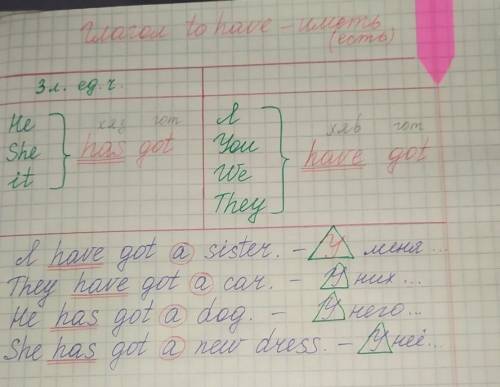 Глагол to have - иметь
(есть)
3 л. ед. ч.
хяз гот
He
She
it
has got
хяв гот
I
You
We
They
have got
I have got a sister. - У меня...
They have got a car. - У них...
He has got a dog. - У него...
She has got a new dress. - У неё...